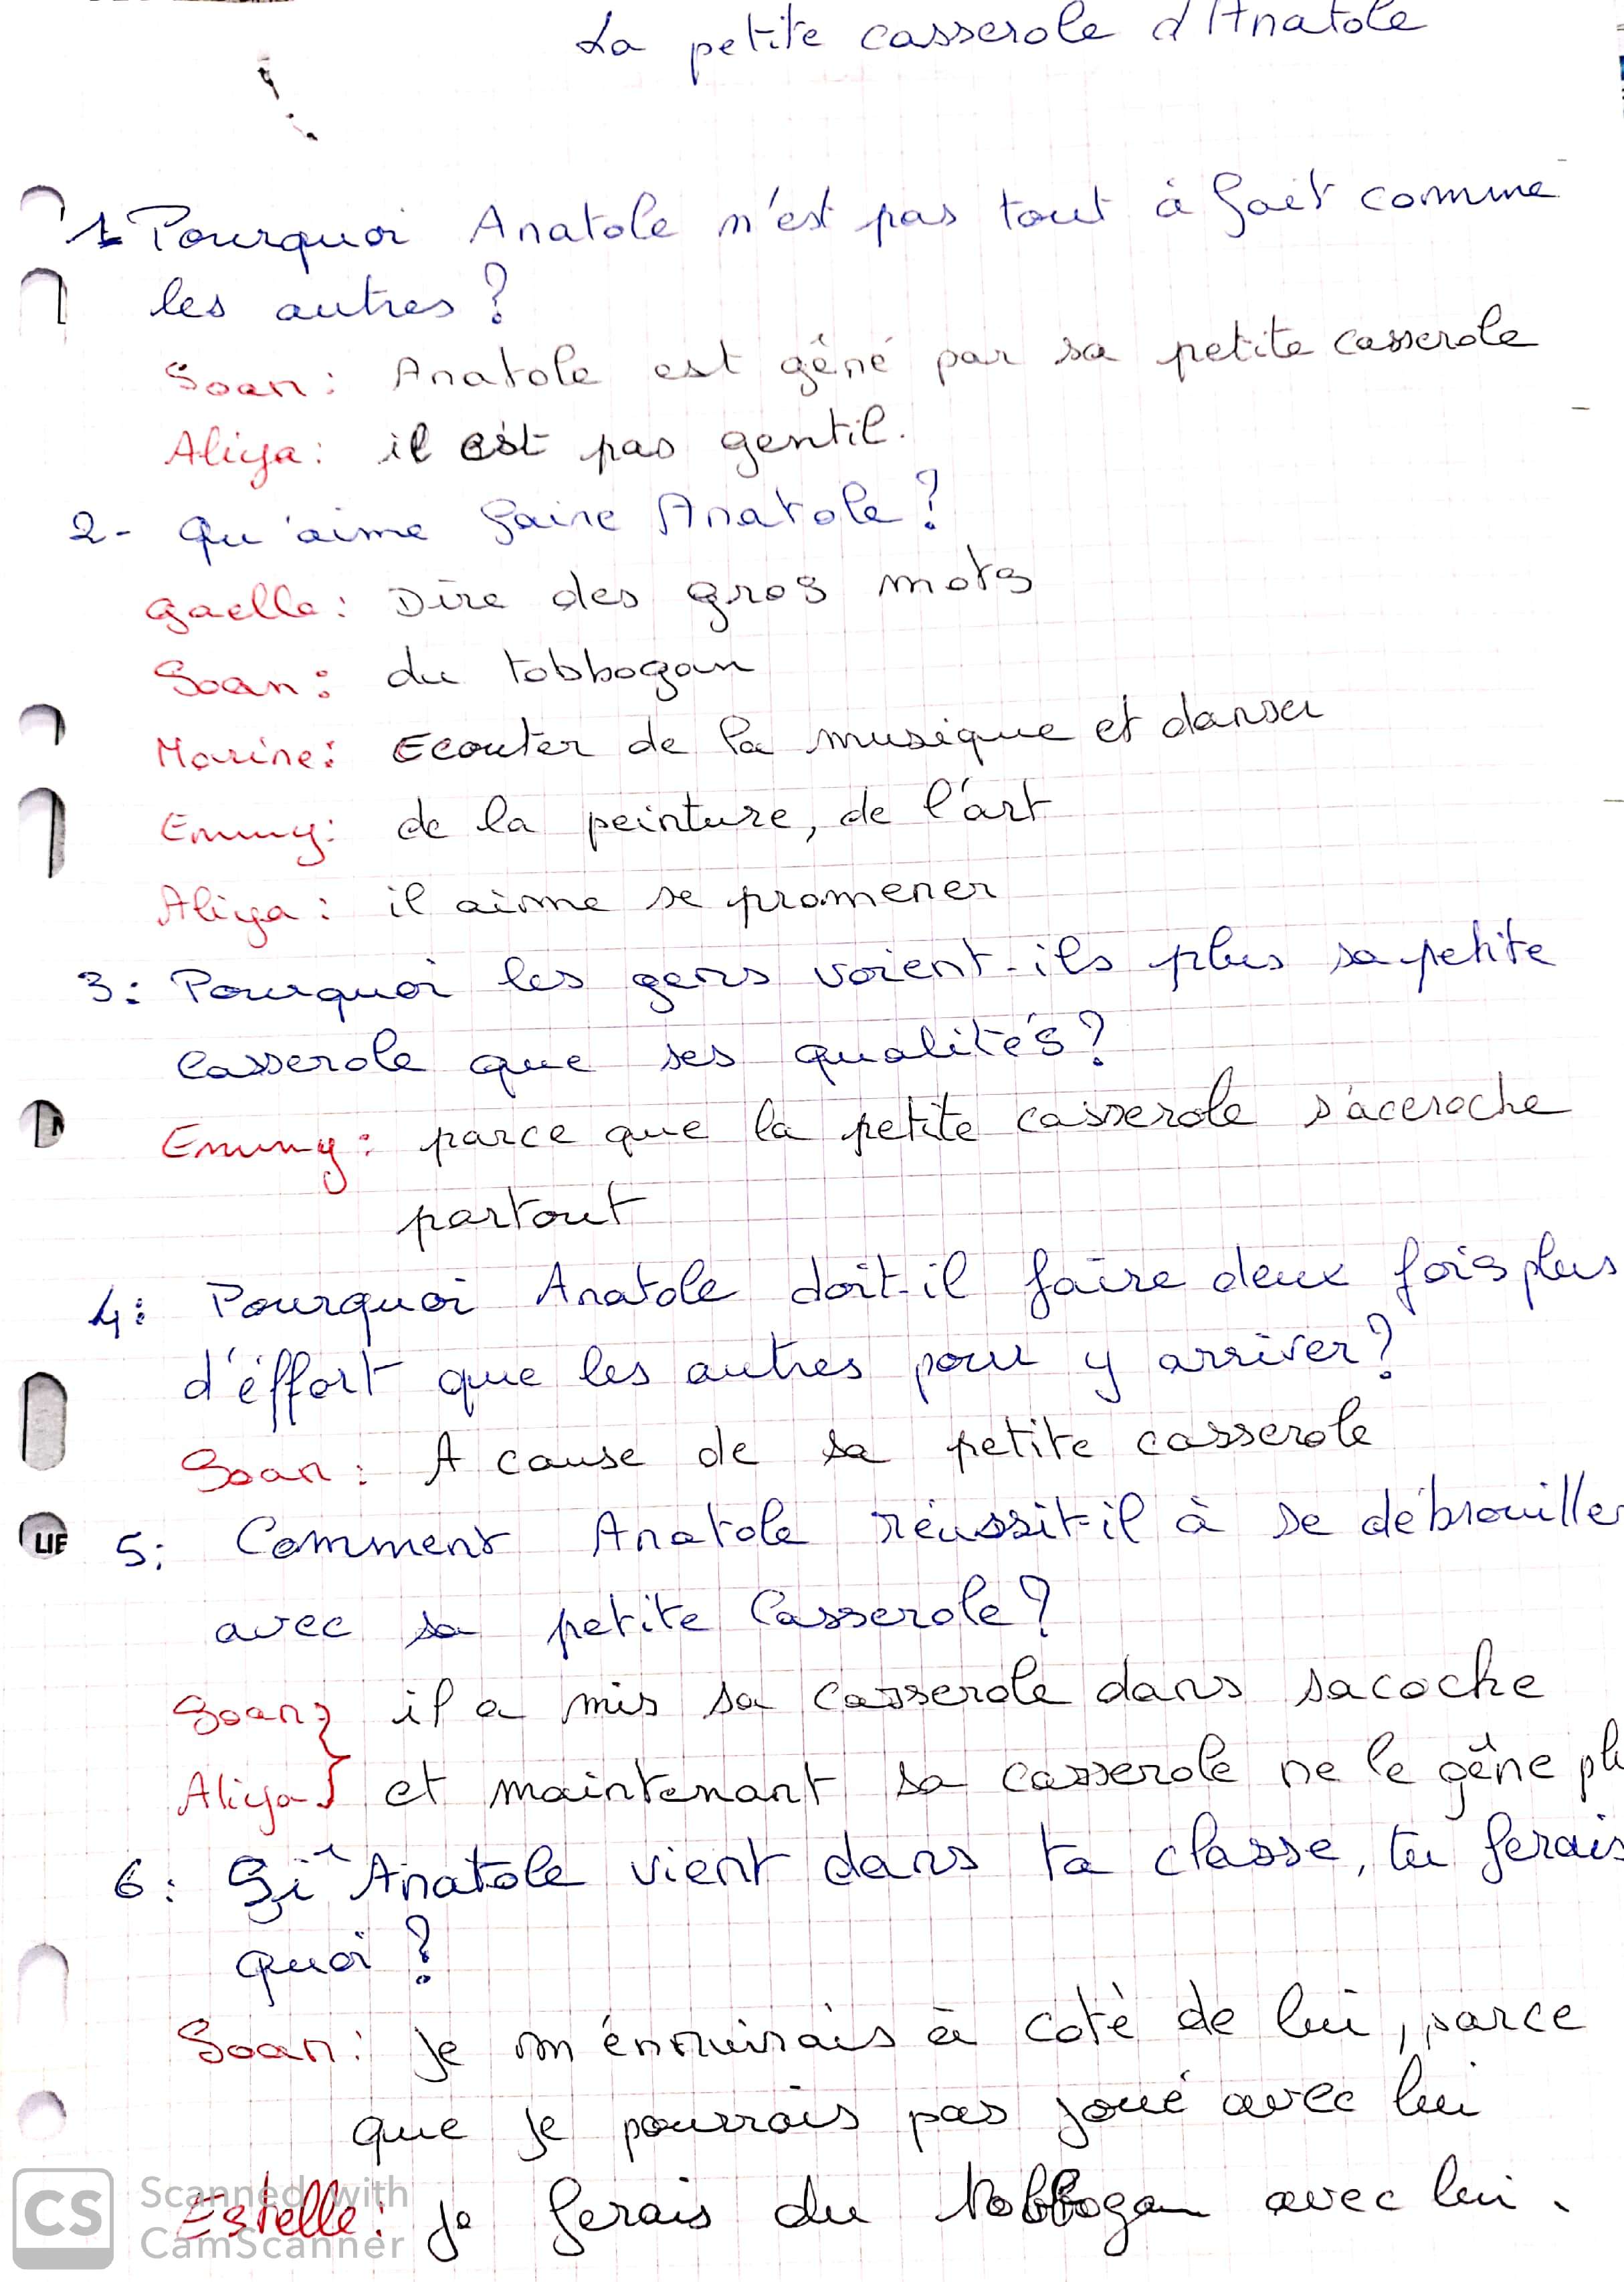 La petite casserole d'Anatole
1- Pourquoi Anatole n'est pas tout à fait comme
les autres ?
Soan : Anatole est gêné par sa petite casserole
Aliya : il est pas gentil.
2- Qu'aime faire Anatole ?
Gaelle : Dire des gros mots
Soan : du tobbogan
Marine : Ecouter de la musique et danser
Emmy : de la peinture, de l'art
Aliya : il aime se promener
3 : Pourquoi les gens voient-ils plus sa petite
casserole que ses qualités ?
Emmy : parce que la petite casserole s'accroche
partout
4 : Pourquoi Anatole doit-il faire deux fois plus
d'éffort que les autres pour y arriver ?
Soan : A cause de sa petite casserole
5 : Comment Anatole réussit-il à se débrouiller
avec sa petite casserole ?
Soan } il a mis sa casserole dans sacoche
Aliya } et maintenant sa casserole ne le gêne pl
6 : Si Anatole vient dans ta classe, tu ferais
quoi ?
Soan : je m'ennuirais à coté de lui, parce
que je pourrais pas joué avec lui
Estelle : je ferais du tobbogan avec lui.
LIF
CS
Scanned with
CamScanner